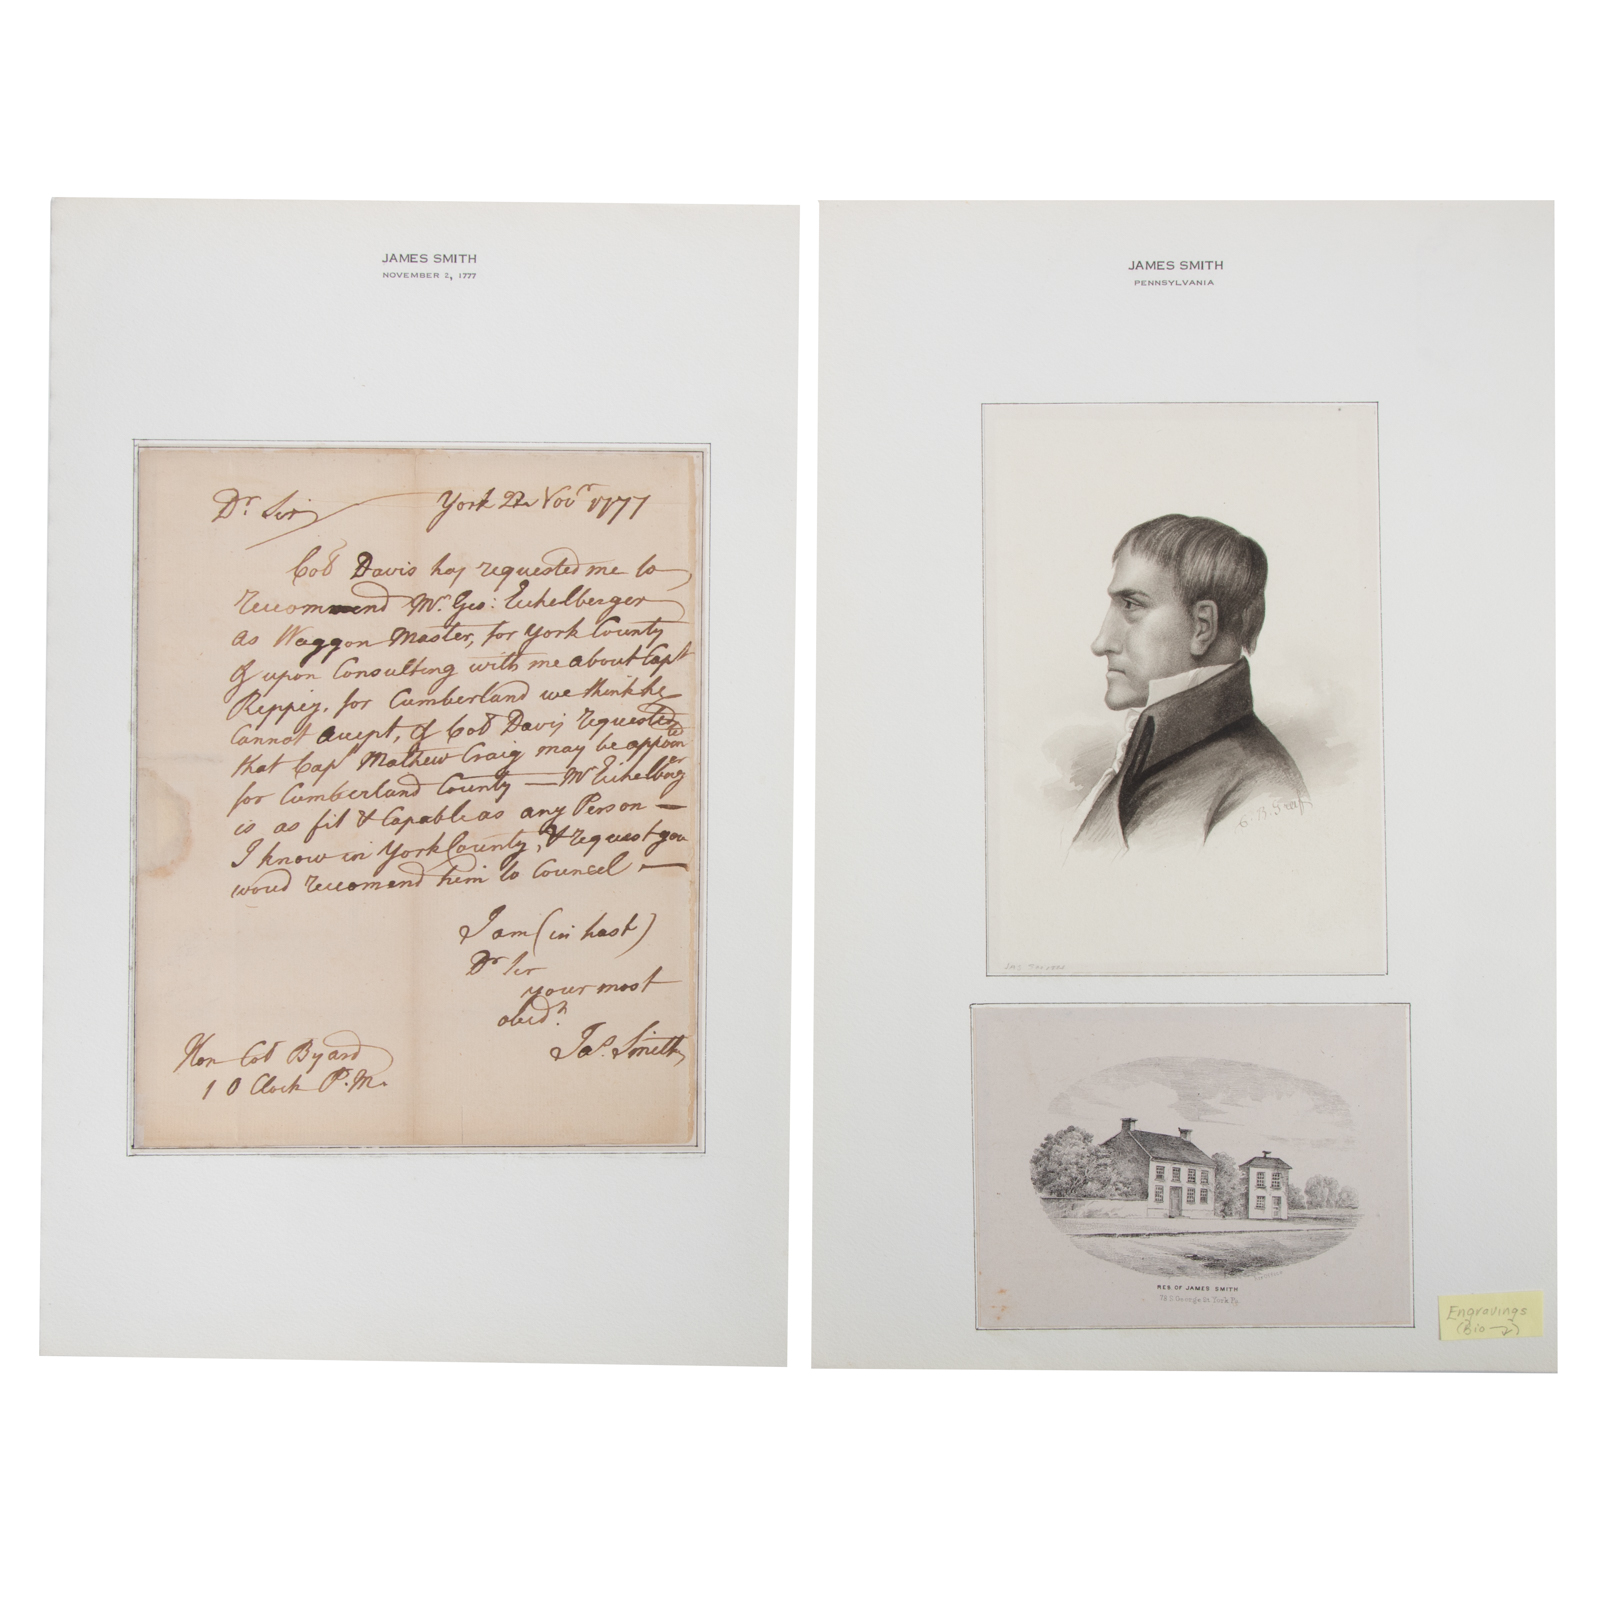 JAMES SMITH
NOVEMBER 2, 1777
Dr. Sir York 2 Novr 1777
Col Davis has requested me to
recommend Mr. Geo: Eichelberger
as Waggon Master, for York County
& upon Consulting with me about Capt
Reppey, for Cumberland we think he
Cannot accept, & Col Davis requested
that Capt Mathew Craig may be appointed
for Cumberland County — Mr Eichelberger
is as fit & Capable as any Person —
I know in York County, & request you
woud recomend him to Council —
I am (in hast)
Dr Sir
your most
obedt.
Jas. Smith
Hon Col Byard
1 O Clock P.M.
JAMES SMITH
PENNSYLVANIA
C. B. Graf
RES. OF JAMES SMITH
S. George St. York Pa.
Engravings
(Bio →)